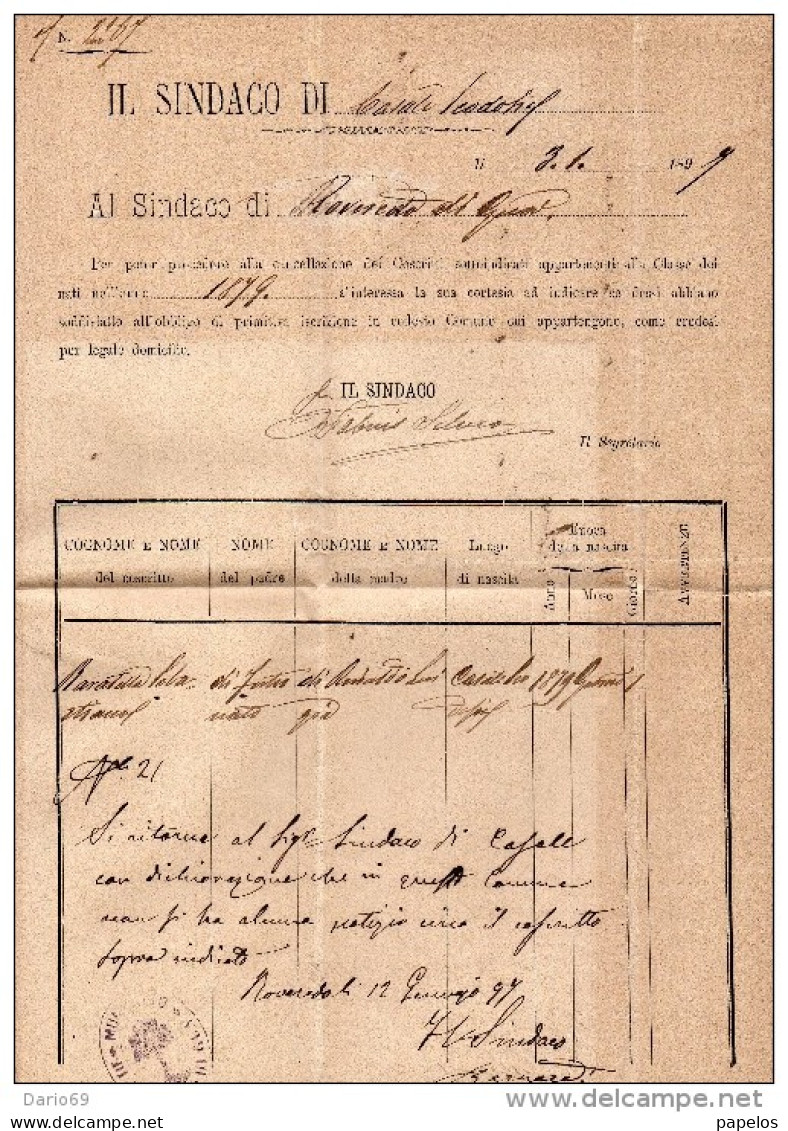 N. 267
IL SINDACO DI Casale
li 3.1. 1897
Al Sindaco di Roveredo di Guà
Per poter procedere alla cancellazione dei Coscritti sottoindicati appartenenti alla Classe dei
nati nell'anno 1879. s'interessa la sua cortesia ad indicare se essi abbiano
soddisfatto all'obbligo di primitiva iscrizione in codesto Comune cui appartengono, come credesi
per legale domicilio.
IL SINDACO
Il Segretario
COGNOME E NOME del coscritto
NOME del padre
COGNOME E NOME della madre
Luogo di nascita
Epoca della nascita
Anno
Mese
Giorno
di
di
1879
1
N. 21
Si ritorna al Sigr Sindaco di Casale
con dichiarazione che in questo Comune
non si ha alcuna notizia circa il coscritto
sopra indicato
Roveredo li 12 Gennajo 97
Il Sindaco
Dario69
delcampe.net
papelos